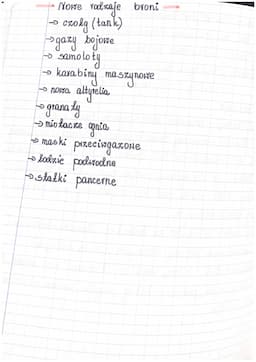 → Nowe rodzaje broni →
→ czołg (tank)
→ gazy bojowe
→ samoloty
→ karabiny maszynowe
→ nowa altyrelia
→ granaty
→ miotacze ognia
→ maski przeciwgazowe
→ łodzie podwodne
→ statki pancerne